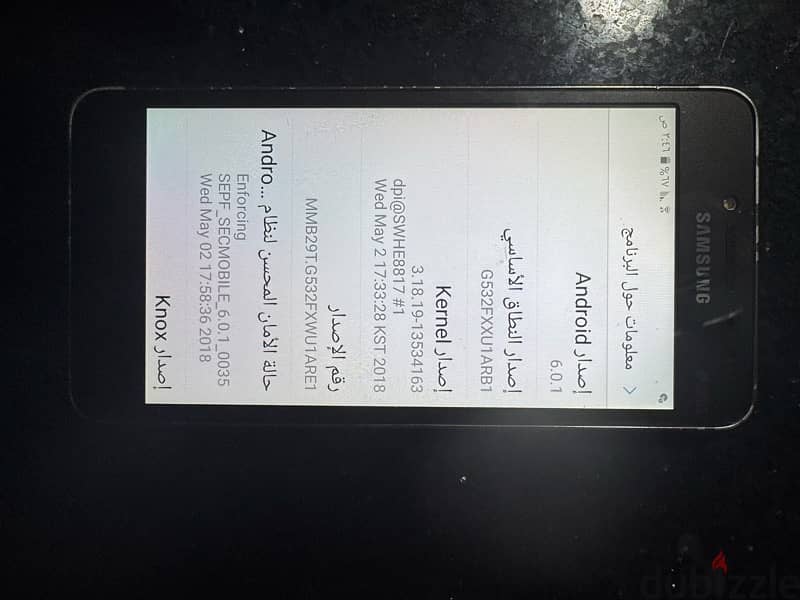 SAMSUNG
٢:٤٦ ص ٦٧%
معلومات حول البرنامج
إصدار Android
6.0.1
إصدار النطاق الأساسي
G532FXXU1ARB1
إصدار Kernel
3.18.19-13534163
dpi@SWHE8817 #1
Wed May 2 17:33:28 KST 2018
رقم الإصدار
MMB29T.G532FXWU1ARE1
حالة الأمان المحسن لنظام Andro...
Enforcing
SEPF_SECMOBILE_6.0.1_0035
Wed May 02 17:58:36 2018
إصدار Knox
dubizzle